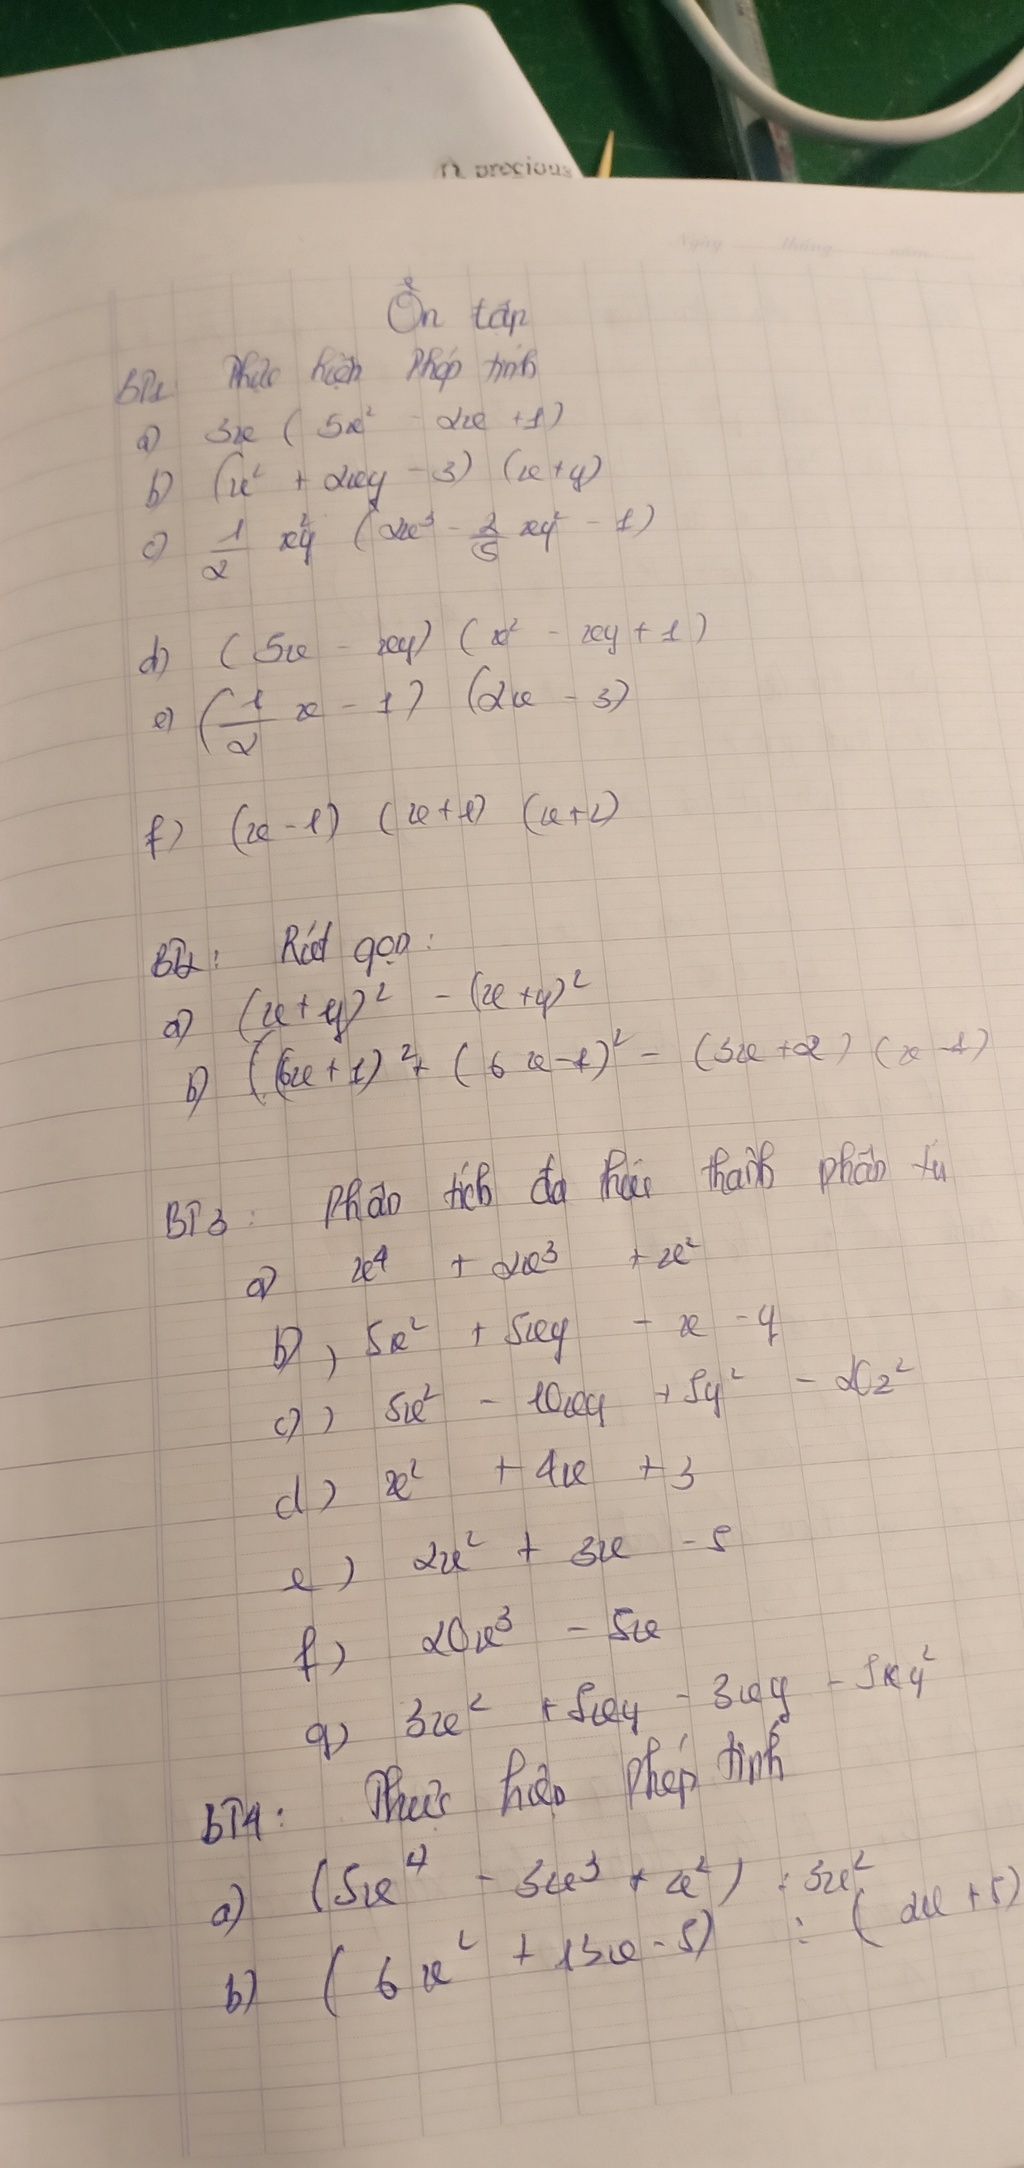 precious
Ngày tháng năm
Ôn tập
BT1 Thực hiện Phép tính
a) 3x ( 5x² - 2x + 1)
b) (x² + 2xy - 3) (x+y)
c) 1/2 x²y (2x³ - 2/5 xy² - 1)
d) (5x - xy) (x² - xy + 1)
e) (1/2 x - 1) (2x - 3)
f) (x - 1) (x + 1) (x+2)
BT2: Rút gọn:
a) (x+y)² - (x+y)²
b) ((6x+1)² + (6x-1)² - (3x+2) (x-1)
BT3: Phân tích đa thức thành phân tử
a) x⁴ + 2x³ + x²
b), 5x² + 5xy - x - y
c)) 5x² - 10xy + 5y² - 20z²
d) x² + 4x + 3
e) 2x² + 3x - 5
f) 20x³ - 5x
g) 3x² + 5xy - 3xy - 5xy²
BT4: Thực hiện Phép tính
a) (5x⁴ - 3x³ + x²) : 3x²
b) (6x² + 13x - 5) : (2x + 5)